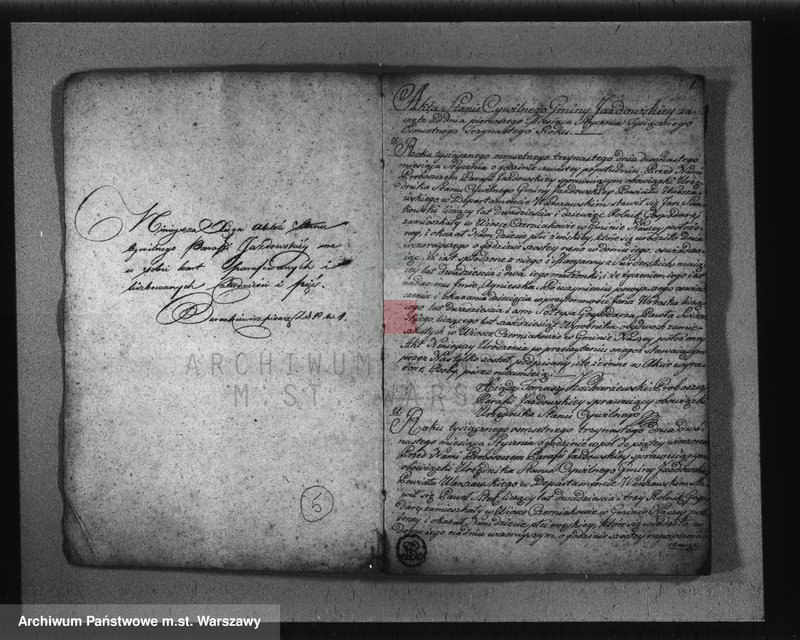 Niniejsza Xięga Aktów Stanu
Cywilnego Parafii Jazdowskiey ma
w sobie kart Paraffowanych i
liczbowanych
5
1
Akta Stanu Cywilnego Gminy Jazdowskiey za
częte Od dnia pierwszego Miesiąca Stycznia Tysiącznego
Osmsetnego Trzynastego Roku.
Roku tysiącznego osmsetnego trzynastego dnia dwunastego
miesiąca Stycznia o godzinie czwartey popołudniu. Przed Nami
Proboszczem Parafii Jazdowskiey sprawuiącym obowiązki Urzę
dnika Stanu Cywilnego Gminy Jazdowskiey Powiatu Warsza
wskiego w Departamencie Warszawskim, stawił się Jan
liczący lat dwadzieścia i dziewięć Rolnik Gospodarz
zamieszkały w Wiosce Czerniakowie w Gminie Naszey położo
ney, i okazał Nam dziecię płci żeńskiey, które się urodziło dnia
wczorayszego o godzinie szóstey rano w domu iego, oświadcza
iąc, iż iest spłodzone z niego i Maryanny z maią
cey lat dwadzieścia i dwa iego małżonki, i że życzeniem iego iest
nadać mu imię Agnieszka. Po uczynieniu powyższego oświad
czenia i okazania dziecięcia w przytomności Jana liczą
cego lat dwadzieścia i Gospodarza, Pawła
liczącego lat sześćdziesiąt Wyrobnika, obydwóch zamie
szkałych w Wiosce Czerniakowie w Gminie Naszey położoney.
Akt Ninieyszy Urodzenia po przeczytaniu onegoż Stawaiącym
przez Nas tylko został podpisany, iż inne w Akcie wyra
żone Osoby pisać nieumieią.
Xiądz Tomasz Proboszcz
Parafii Jazdowskiey sprawuiący obowiązki
Urzędnika Stanu Cywilnego
Roku tysiącznego osmsetnego trzynastego Dnia dwu
nastego miesiąca Stycznia o godzinie wpół do piątey wieczorem
Przed Nami Proboszczem Parafii Jazdowskiey sprawuiącym
obowiązki Urzędnika Stanu Cywilnego Gminy Jazdowskiey
Powiatu Warszawskiego w Departamencie Warszawskim sta
wił się Paweł liczący lat dwadzieścia i trzy Rolnik Gospo
darz zamieszkały w Wiosce Czerniakowie w Gminie Naszey poło
żoney i okazał Nam dziecię płci męskiey, które się urodziło w
Domu iego na dniu wczorayszym o godzinie szóstey rano, oświad
ARCHIWUM
M ST WARS
Archiwum Państwowe m.st. Warszawy